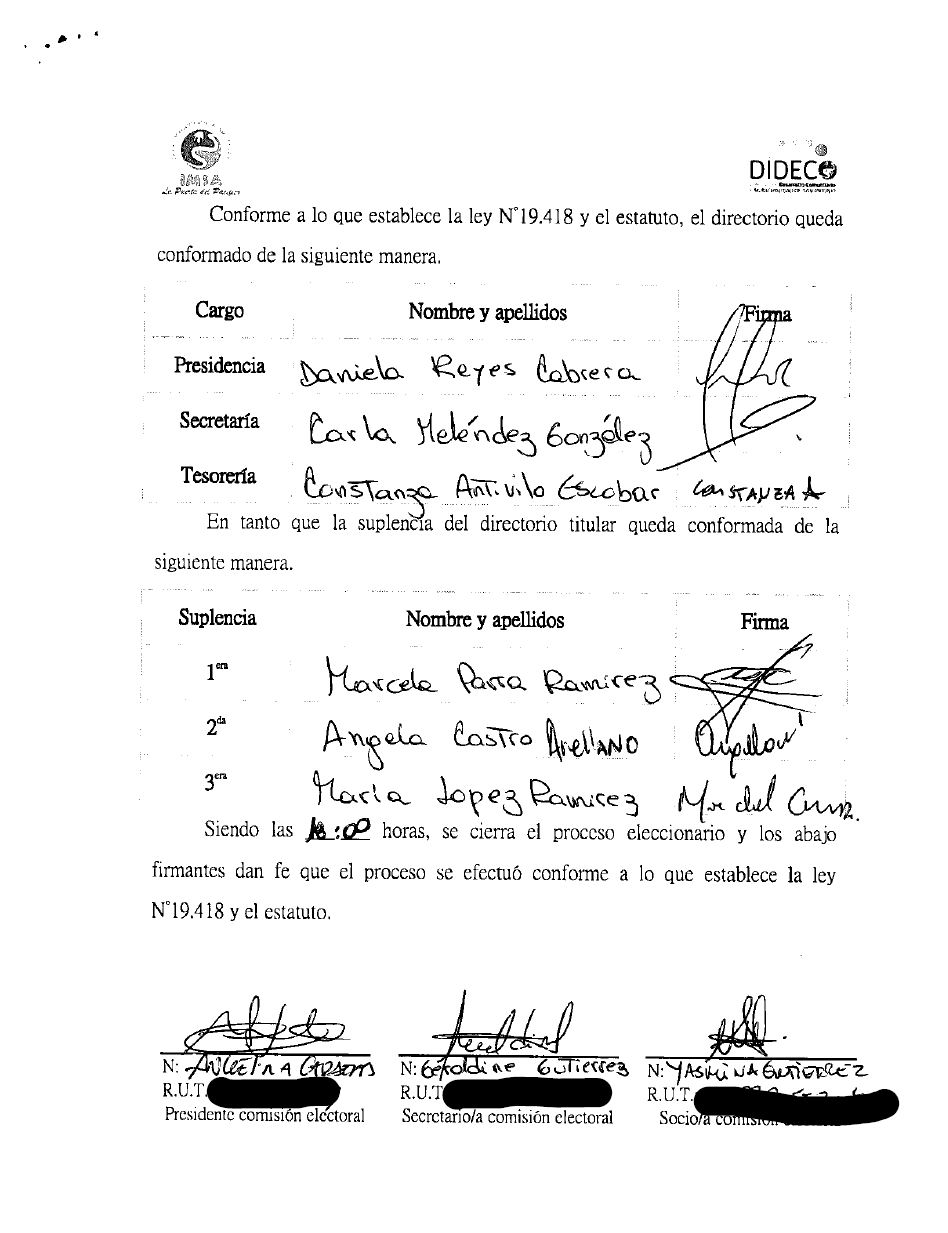 IMIA
La Puerta del Parque
DIDECO
Desarrollo Comunitario
Conforme a lo que establece la ley N°19.418 y el estatuto, el directorio queda
conformado de la siguiente manera.
Cargo Nombre y apellidos Firma
Presidencia Daniela Reyes Cabrera
Secretaría Carla Meléndez González
Tesorería Constanza Antivilo Escobar CONSTANZA A
En tanto que la suplencia del directorio titular queda conformada de la
siguiente manera.
Suplencia Nombre y apellidos Firma
1era Marcela Parra Ramirez
2da Angela Castro Arellano
3era Maria Lopez Ramirez Ma del Carmen
Siendo las :00 horas, se cierra el proceso eleccionario y los abajo
firmantes dan fe que el proceso se efectuó conforme a lo que establece la ley
N°19.418 y el estatuto.
N: N: Geraldine Gutierrez N: YASMINA GUTIERREZ
R.U.T. R.U.T R.U.T.
Presidente comisión electoral Secretario/a comisión electoral Socio/a comisión electoral